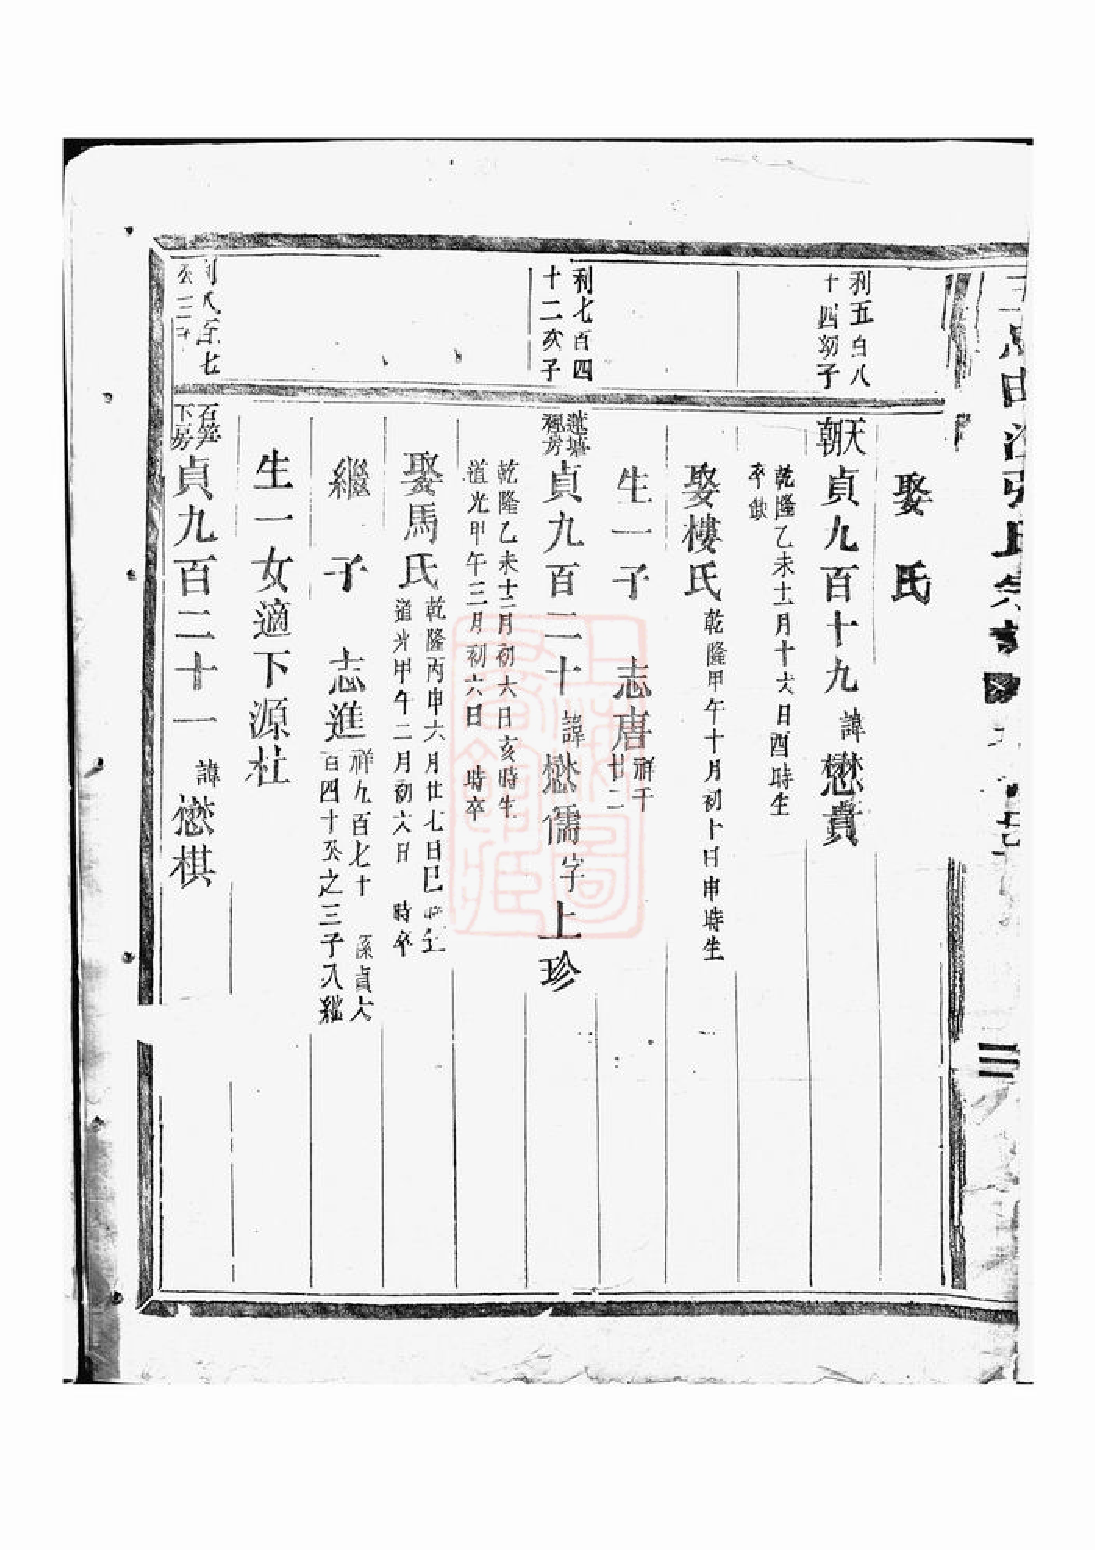 娶　氏
利五百八
十四幼子
天朝
貞九百十九　諱懋貴
乾隆乙未十一月十六日酉時生
卒缺
娶樓氏　乾隆甲午十月初十日申時生
生一子　志唐　祥千
廿二
利七百四
十二次子
貞九百二十　諱懋儒字上珍
乾隆乙未十二月初六日亥時生
道光甲午三月初六日　時卒
娶馬氏　乾隆丙申六月廿七日巳時生
道光甲午二月初六日　時卒
繼子　志進　祥九百七十　係貞六
百四十　之三子入繼
生一女適下源杜
下房
貞九百二十一　諱懋棋
上海圖書館藏